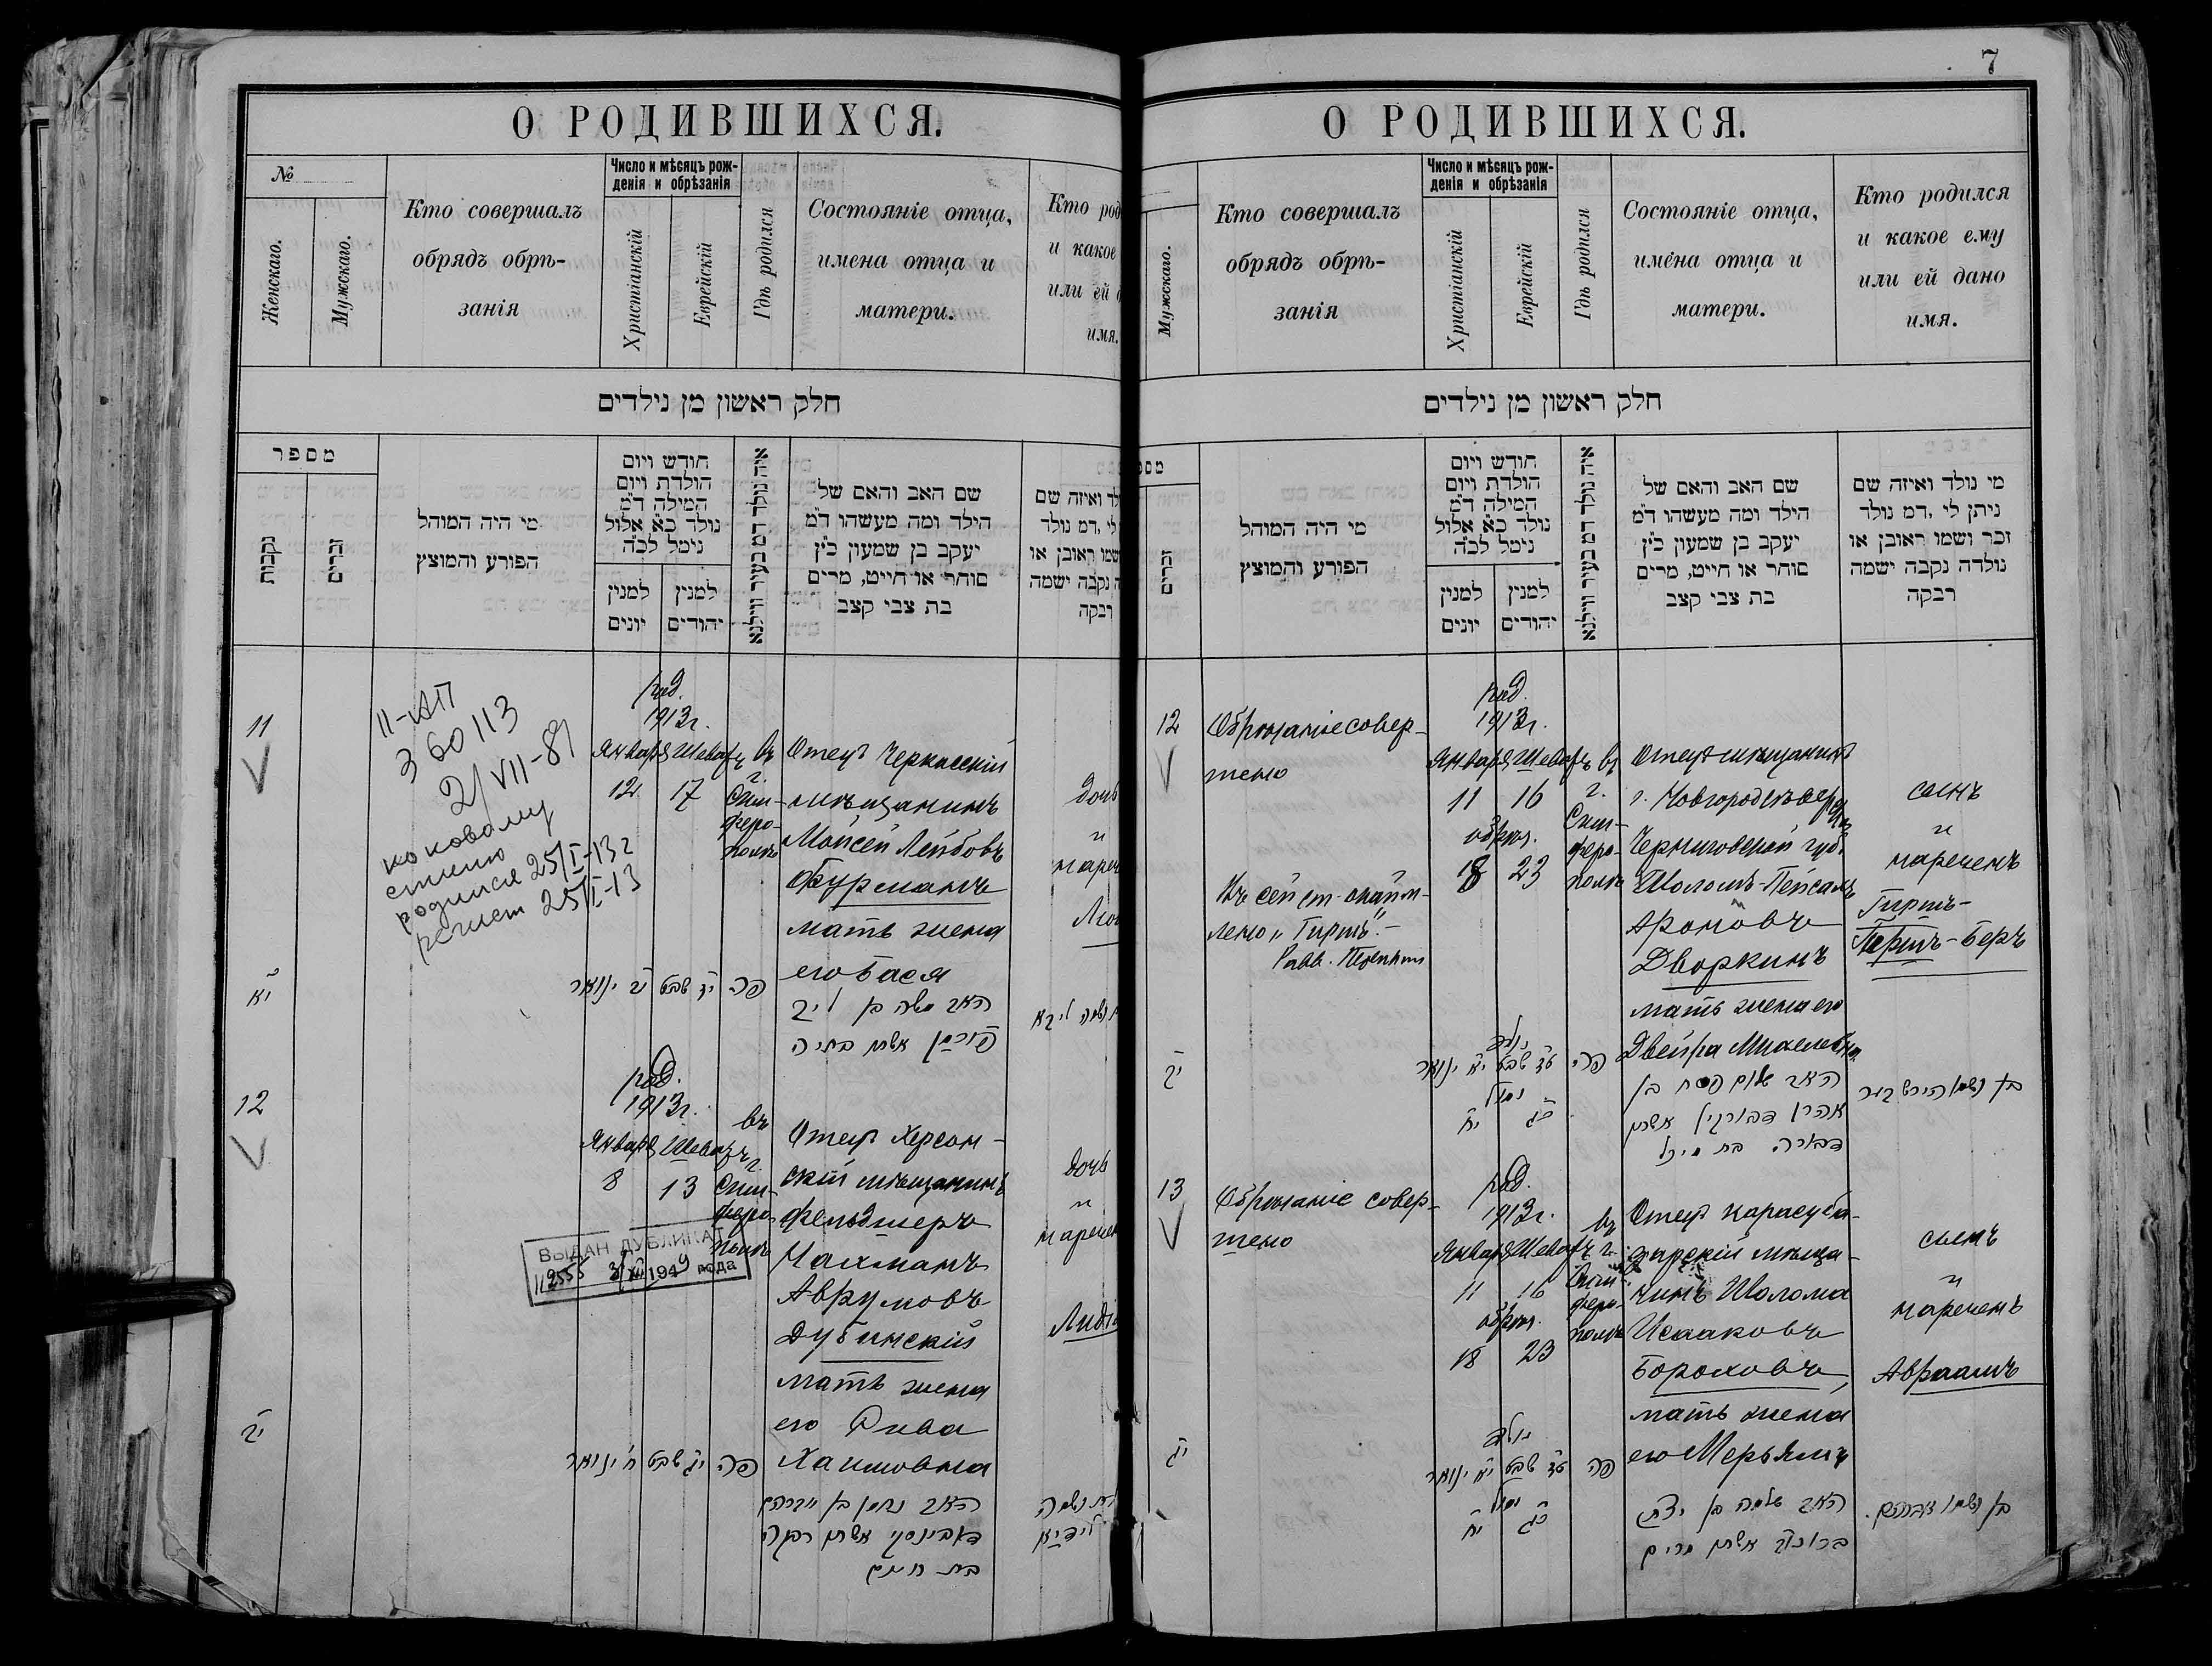 О РОДИВШИХСЯ.
№
Женскаго.
Мужскаго.
Кто совершалъ
обрядъ обрѣ-
занія
Число и мѣсяцъ рож-
денія и обрѣзанія
Христіанскій
Еврейскій
Гдѣ родился
Состояніе отца,
имена отца и
матери.
Кто род
и какое
или ей д
имя.
חלק ראשון מן נילדים
מספר
נקבות
זכרים
מי היה המוהל
הפורע והמוצץ
חודש ויום
הולדת ויום
המילה ד״מ
נולד כ״א אלול
נימל לכ״ה
למנין
יונים
למנין
יהודים
איה נולד דמ בעיר ווילנא
שם האב והאם של
הילד ומה מעשהו ד״מ
יעקב בן שמעון כ״ץ
סוחר או חייט, מרים
בת צבי קצב
לד ואיזה שם
לי ,דמ נולד
שמו ראובן או
ה נקבה ישמה
רבקה
11
II-АП
360113
2/VII-81
родился 25/I-13 г
25/I-13
род.
1913 г.
Января Шеватъ
12 17
въ
г.
Сим-
феро-
полѣ
Отецъ Черкасскій
мѣщанинъ
Мойсей Лейбовъ
Фурманъ
мать жена
его Бася
дочь
и
нареч
יא
יב ינואר
יז שבט
פה
האב משה בן ליב
פורמן אשתו בתיה
12
род.
1913 г.
Января Шеватъ
8 13
въ
г.
Сим-
феро-
полѣ
Отецъ Херсон-
скій мѣщанинъ
фельдшеръ
Нахманъ
Аврумовъ
Дубинскій
мать жена
его Рива
Хаимовна
дочь
и
наречен
Лидi
ВЫДАН ДУБЛИКАТ
1949 года
יב
ח ינואר
יג שבט
פה
האב נחמן בן אברהם
דאבינסקי אשתו רבקה
בת חיים
לידיא
7
О РОДИВШИХСЯ.
Мужскаго.
Кто совершалъ
обрядъ обрѣ-
занія
Число и мѣсяцъ рож-
денія и обрѣзанія
Христіанскій
Еврейскій
Гдѣ родился
Состояніе отца,
имена отца и
матери.
Кто родился
и какое ему
или ей дано
имя.
חלק ראשון מן נילדים
זכרים
מי היה המוהל
הפורע והמוצץ
חודש ויום
הולדת ויום
המילה ד״מ
נולד כ״א אלול
נימל לכ״ה
למנין
יונים
למנין
יהודים
איה נולד דמ בעיר ווילנא
שם האב והאם של
הילד ומה מעשהו ד״מ
יעקב בן שמעון כ״ץ
סוחר או חייט, מרים
בת צבי קצב
מי נולד ואיזה שם
ניתן לי ,דמ נולד
זכר ושמו ראובן או
נולדה נקבה ישמה
רבקה
12
Обрѣзаніе совер-
шено
род.
1913 г.
Января Шеватъ
11 16
обрѣз.
18 23
въ
г.
Сим-
феро-
полѣ
Отецъ мѣщанинъ
г. Новгородсѣверска
Черниговской губ.
Шоломъ-Пейсахъ
Ароновъ
Дворкинъ
мать жена его
Двейра Михелевна
сынъ
и
нареченъ
Гиршъ-
Гершъ-Беръ
"Гиршъ".-
יב
נולד
יא ינואר
טז שבט
פה
נימול
יח
כג
האב שלום פסח בן
אהרן דבורקין אשתו
דבורה בת מיכל
בן ושמו הירש בער
13
Обрѣзаніе совер-
шено
род.
1913 г.
Января Шеватъ
11 16
обрѣз.
18 23
въ
г.
Сим-
феро-
полѣ
Отецъ карасуба-
зарскій мѣща-
нинъ Шолома
Исааковъ
Бороховъ,
мать жена
его Мерьямъ
сынъ
и
нареченъ
Авраамъ
יג
נולד
יא ינואר
טז שבט
פה
נימול
יח
כג
האב שלמה בן יצחק
ברוכוב אשתו מרים
בן ושמו אברהם.